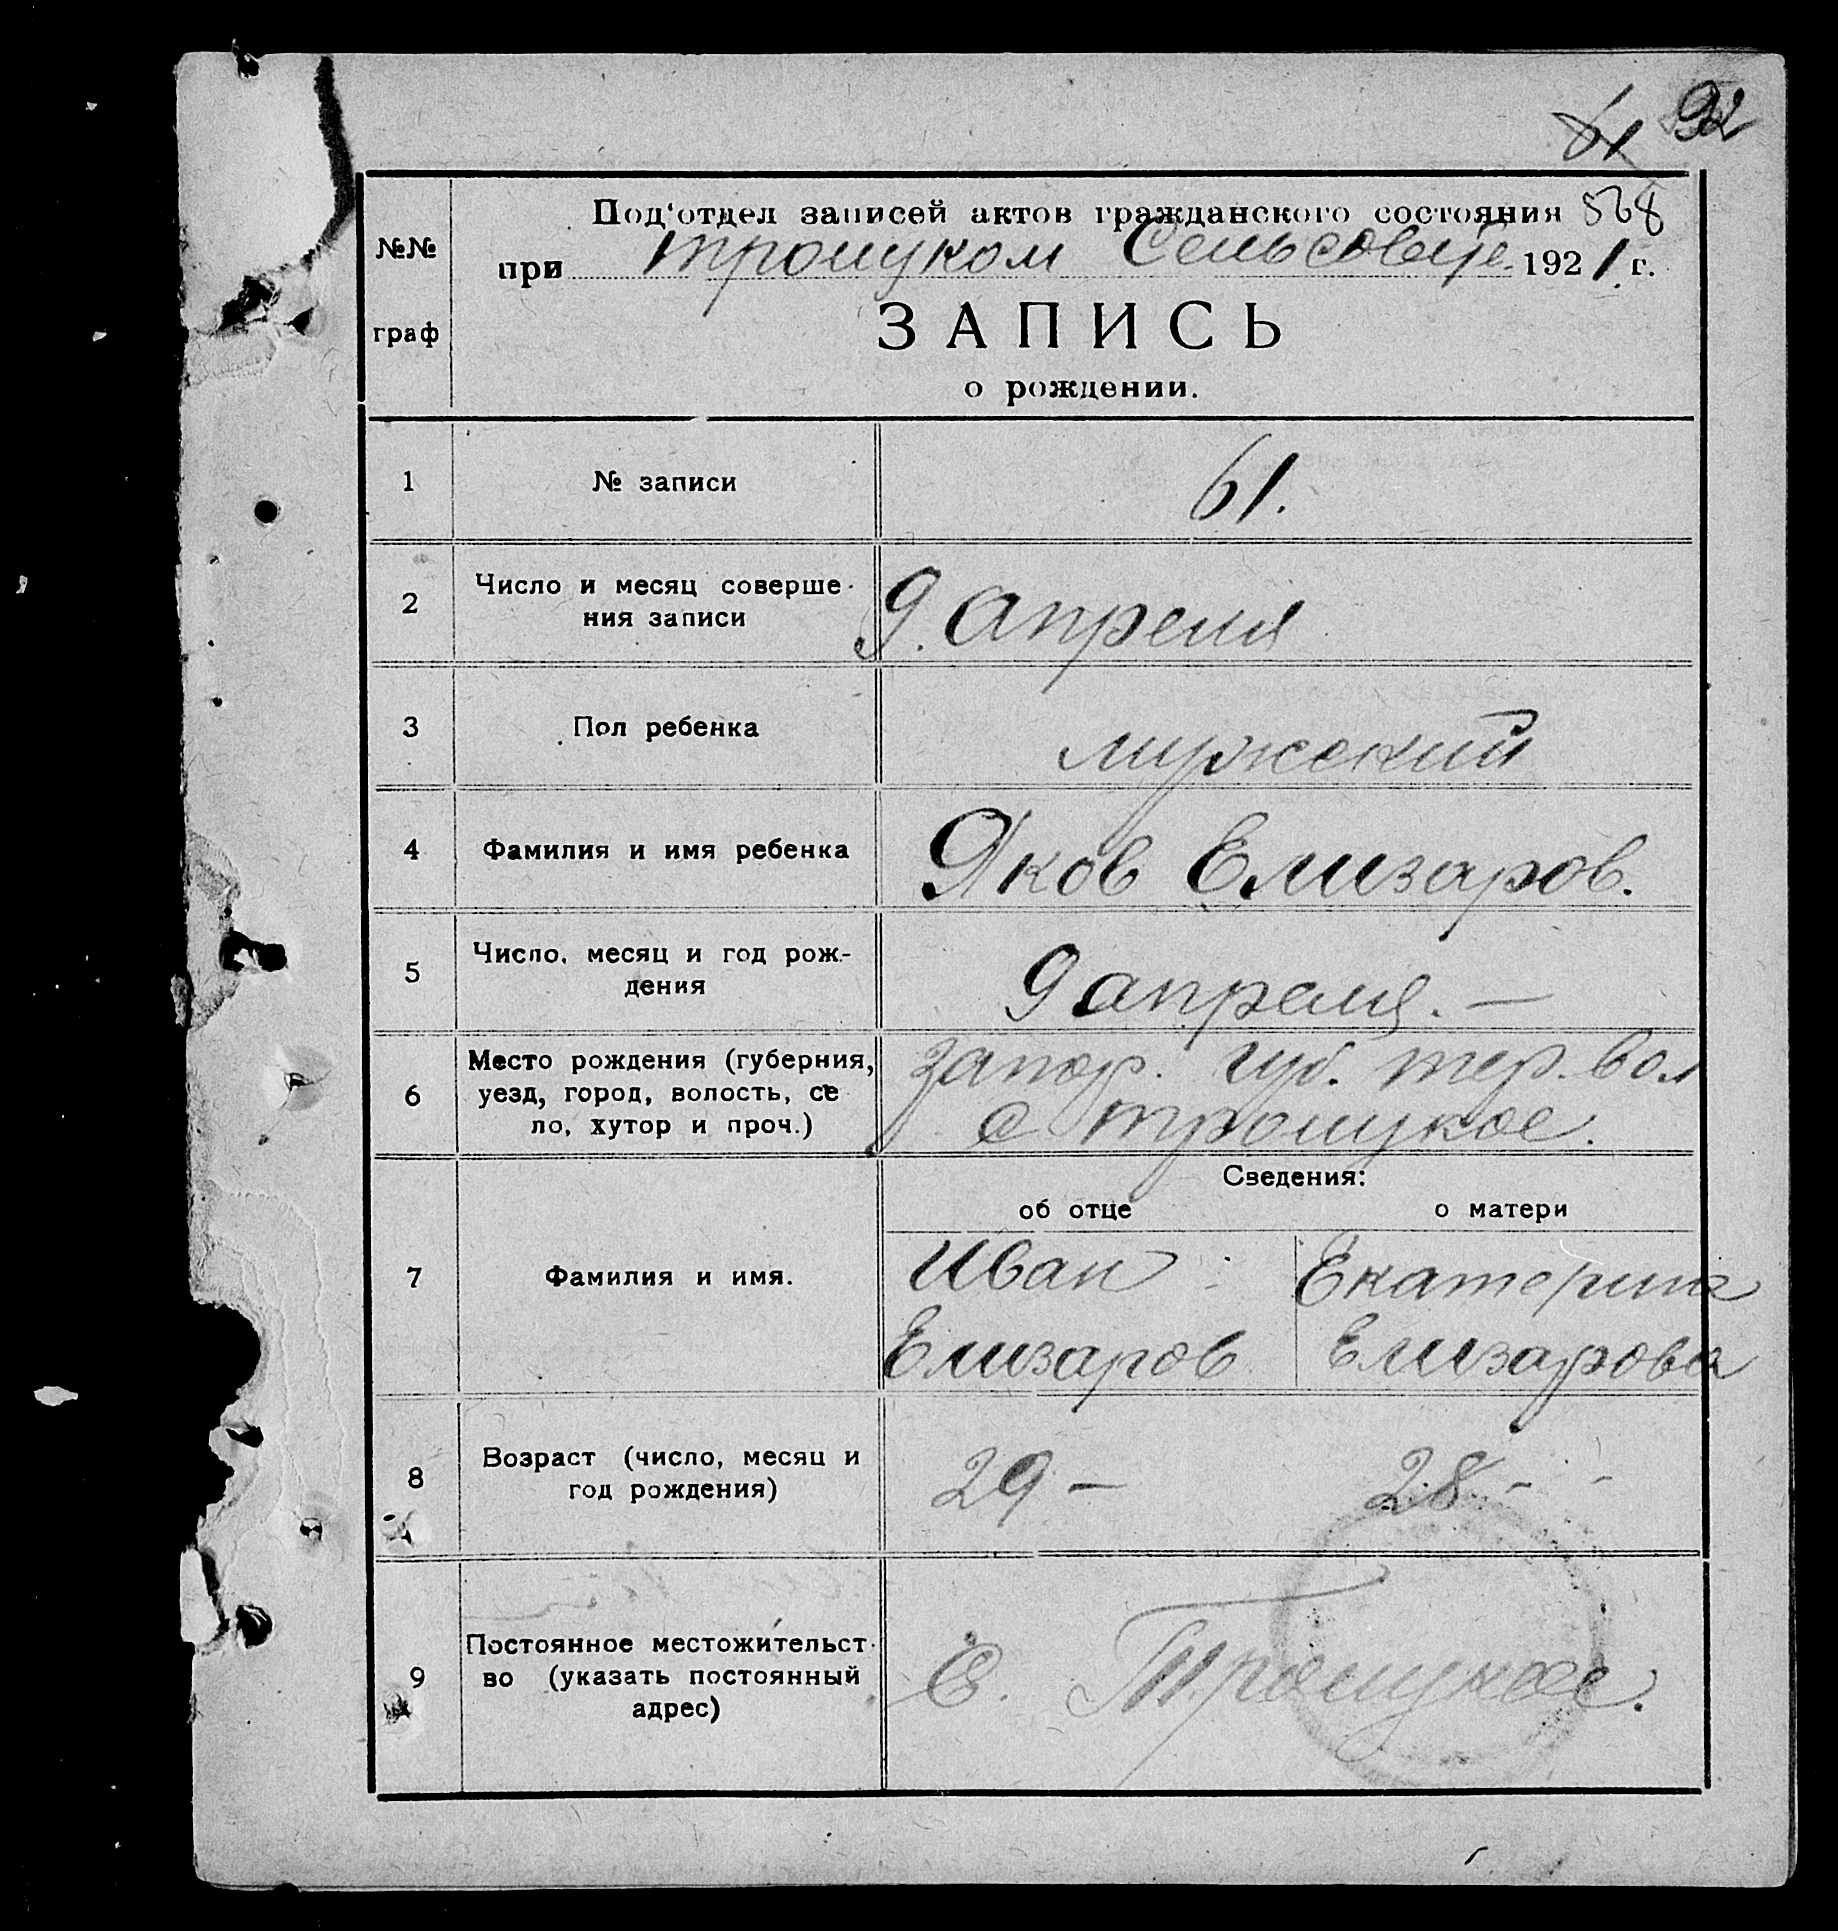 61 92
Под'отдел записей актов гражданского состояния 568
№№
при троицком Сельсовете 1921 г.
граф
ЗАПИСЬ
о рождении.
1 № записи 61.
2 Число и месяц соверше-
ния записи 9. апреля
3 Пол ребенка мужеский
4 Фамилия и имя ребенка Яков Елизаров.
5 Число, месяц и год рож-
дения 9 апреля. —
6 Место рождения (губерния, запор. губ. тер. вол
уезд, город, волость, се
ло, хутор и проч.) с троицкое.
Сведения:
об отце о матери
7 Фамилия и имя. Иван Екатерина
Елизаров Елизарова
8 Возраст (число, месяц и
год рождения) 29 — 28 - -
9 Постоянное местожительст-
во (указать постоянный
адрес) С. Троицкое.